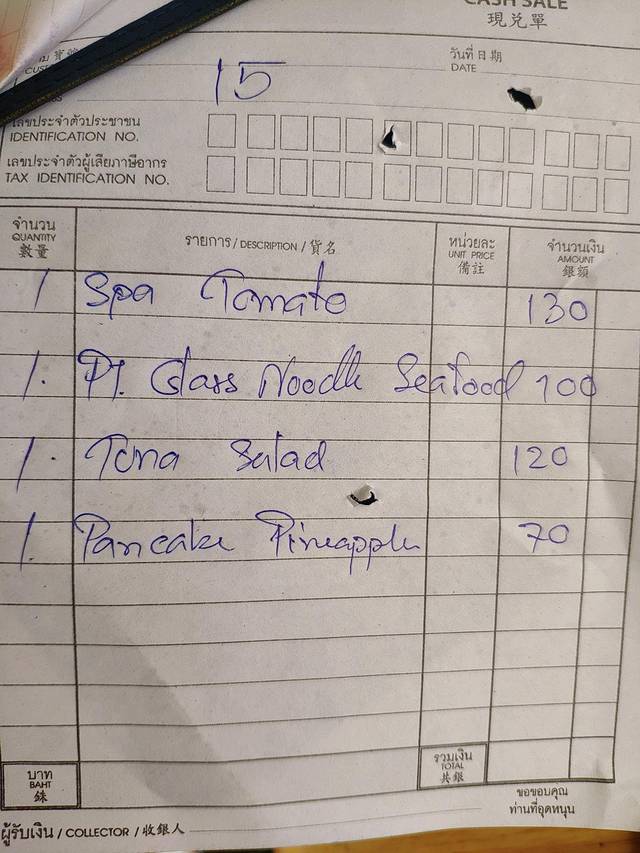 CASH SALE
現兌單
วันที่ 日期
DATE
15
เลขประจำตัวประชาชน
IDENTIFICATION NO.
เลขประจำตัวผู้เสียภาษีอากร
TAX IDENTIFICATION NO.
จำนวน รายการ / DESCRIPTION / 貨名 หน่วยละ จำนวนเงิน
QUANTITY UNIT PRICE AMOUNT
數量 備註 銀額
1 Spa Tomato 130
1. Pt. Glass Noodle Seafood 100
1. Tona Salad 120
1. Pancake Pineapple 70
บาท รวมเงิน
BAHT TOTAL
銖 共銀
ขอขอบคุณ
ท่านที่อุดหนุน
ผู้รับเงิน / COLLECTOR / 收銀人